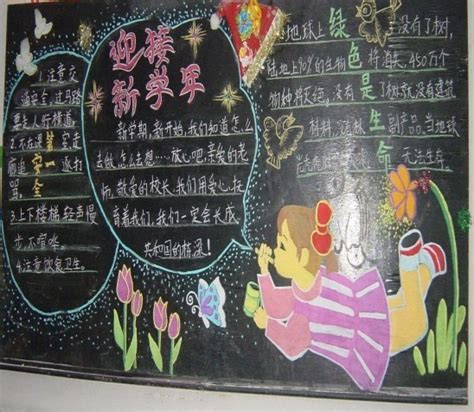 1.注意交
通安全,过马路
要走人行横道
2.不在课第室走
廊追一逐打
骂。全
3.上下楼梯轻声慢
步,不喧哗
4.注意饮食卫生。
迎接
新学年
新学期,新开始,我们知道怎么
去做,怎么去想……放心吧,亲爱的老
师,敬爱的校长,我们用爱心,托
育着我们,我们一定会长成
共和国的栋梁!
地球上绿没有了树,
陆地上90%的生物色将消失450万个
物种将灭绝。没有是了树就没有建筑
材料,生副产品,当地球
命无法生存